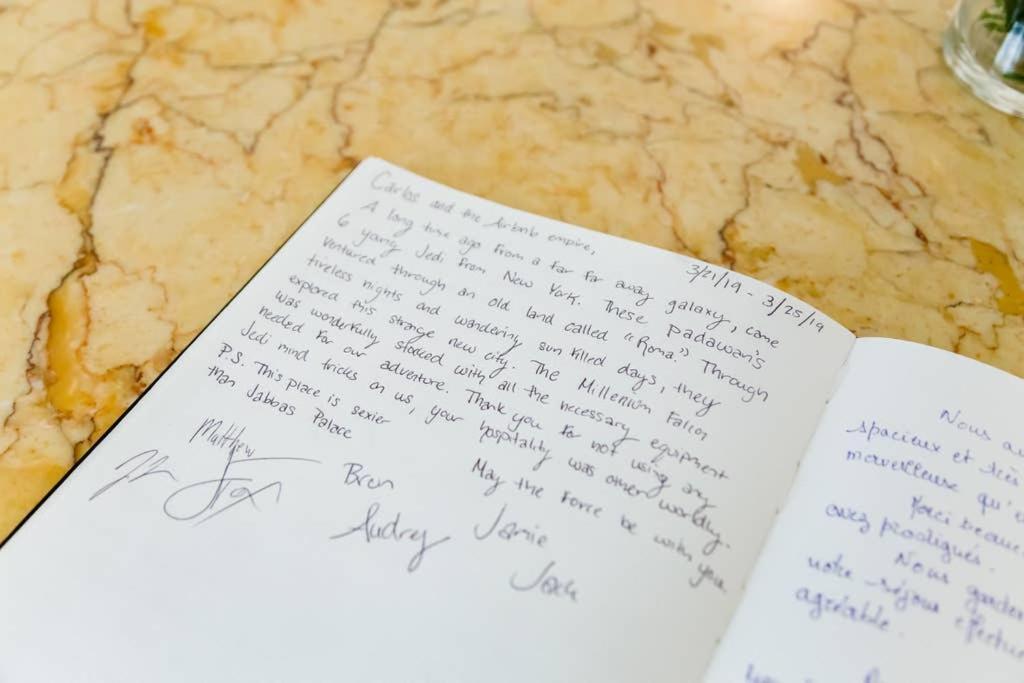 3/21/19 - 3/25/19
Carlos and the Airbnb empire,
A long time ago from a far far away galaxy, came
6 young Jedi from New York. These padawan's
ventured through an old land called "Roma." Through
tireless nights and wandering sun filled days, they
explored this strange new city. The Millenium Falcon
was wonderfully stocked with all the necessary equipment
needed for our adventure. Thank you for not using any
Jedi mind tricks on us, your hospitality was other worldly.
May the Force be with you.
P.S. This place is sexier
than Jabbas Palace
Matthew
Bren
Audrey
Jamie
Jack
Nous
spacieux et très
merveilleuse qu'
Merci
avez prodigués.
Nous
notre séjour
agréable.